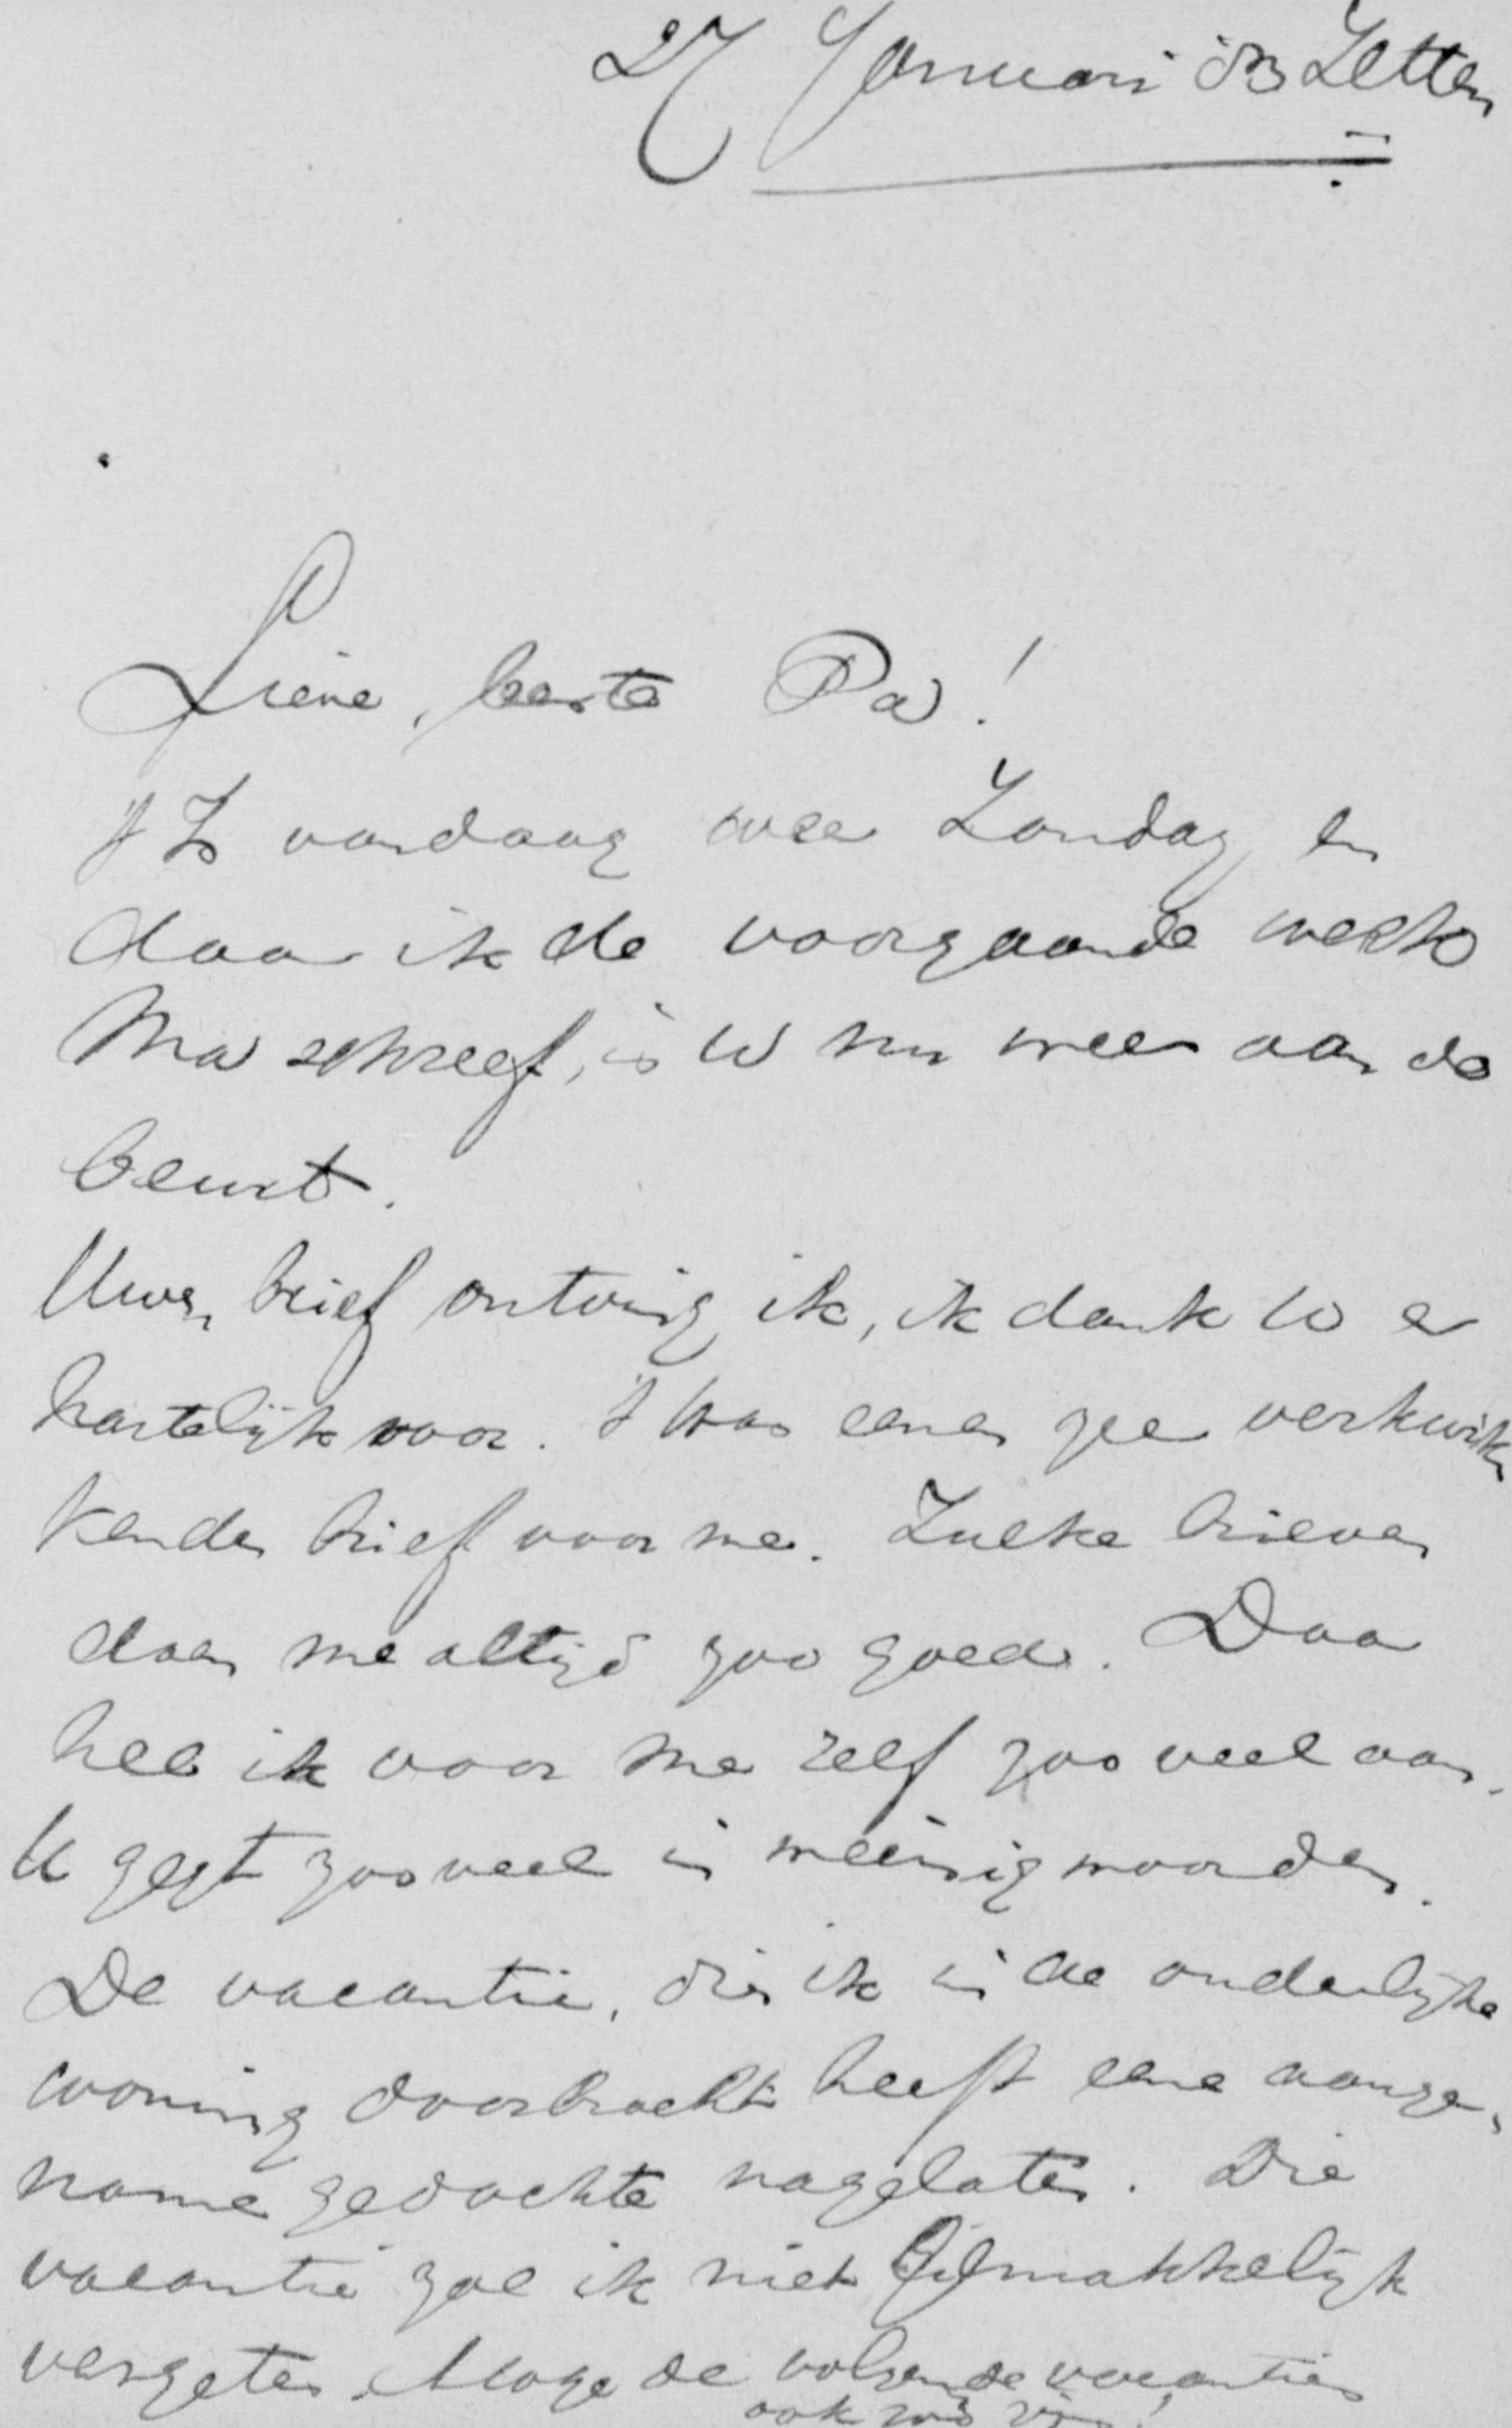 27 Januari Zetten
Lieve, beste Pa!
't Is vandaag weer Zondag en
daar ik de voorgaande week
Ma schreef, is U nu weer aan de
beurt.
Uwen brief ontving ik, ik dank U er
hartelijk voor. 't Was eenen zeer verkwik
kenden brief voor me. Zulke brieven
doen me altijd zoo goed. Daar
heb ik voor me zelf zooveel aan.
U zegt zooveel in weinig woorden.
De vacantie, die ik in de ouderlijke
woning doorbracht heeft eene aange-
name gedachte nagelaten. Die
vacantie zal ik niet gemakkelijk
vergeten. Moge de volgende vacanties
ook zoo zijn!